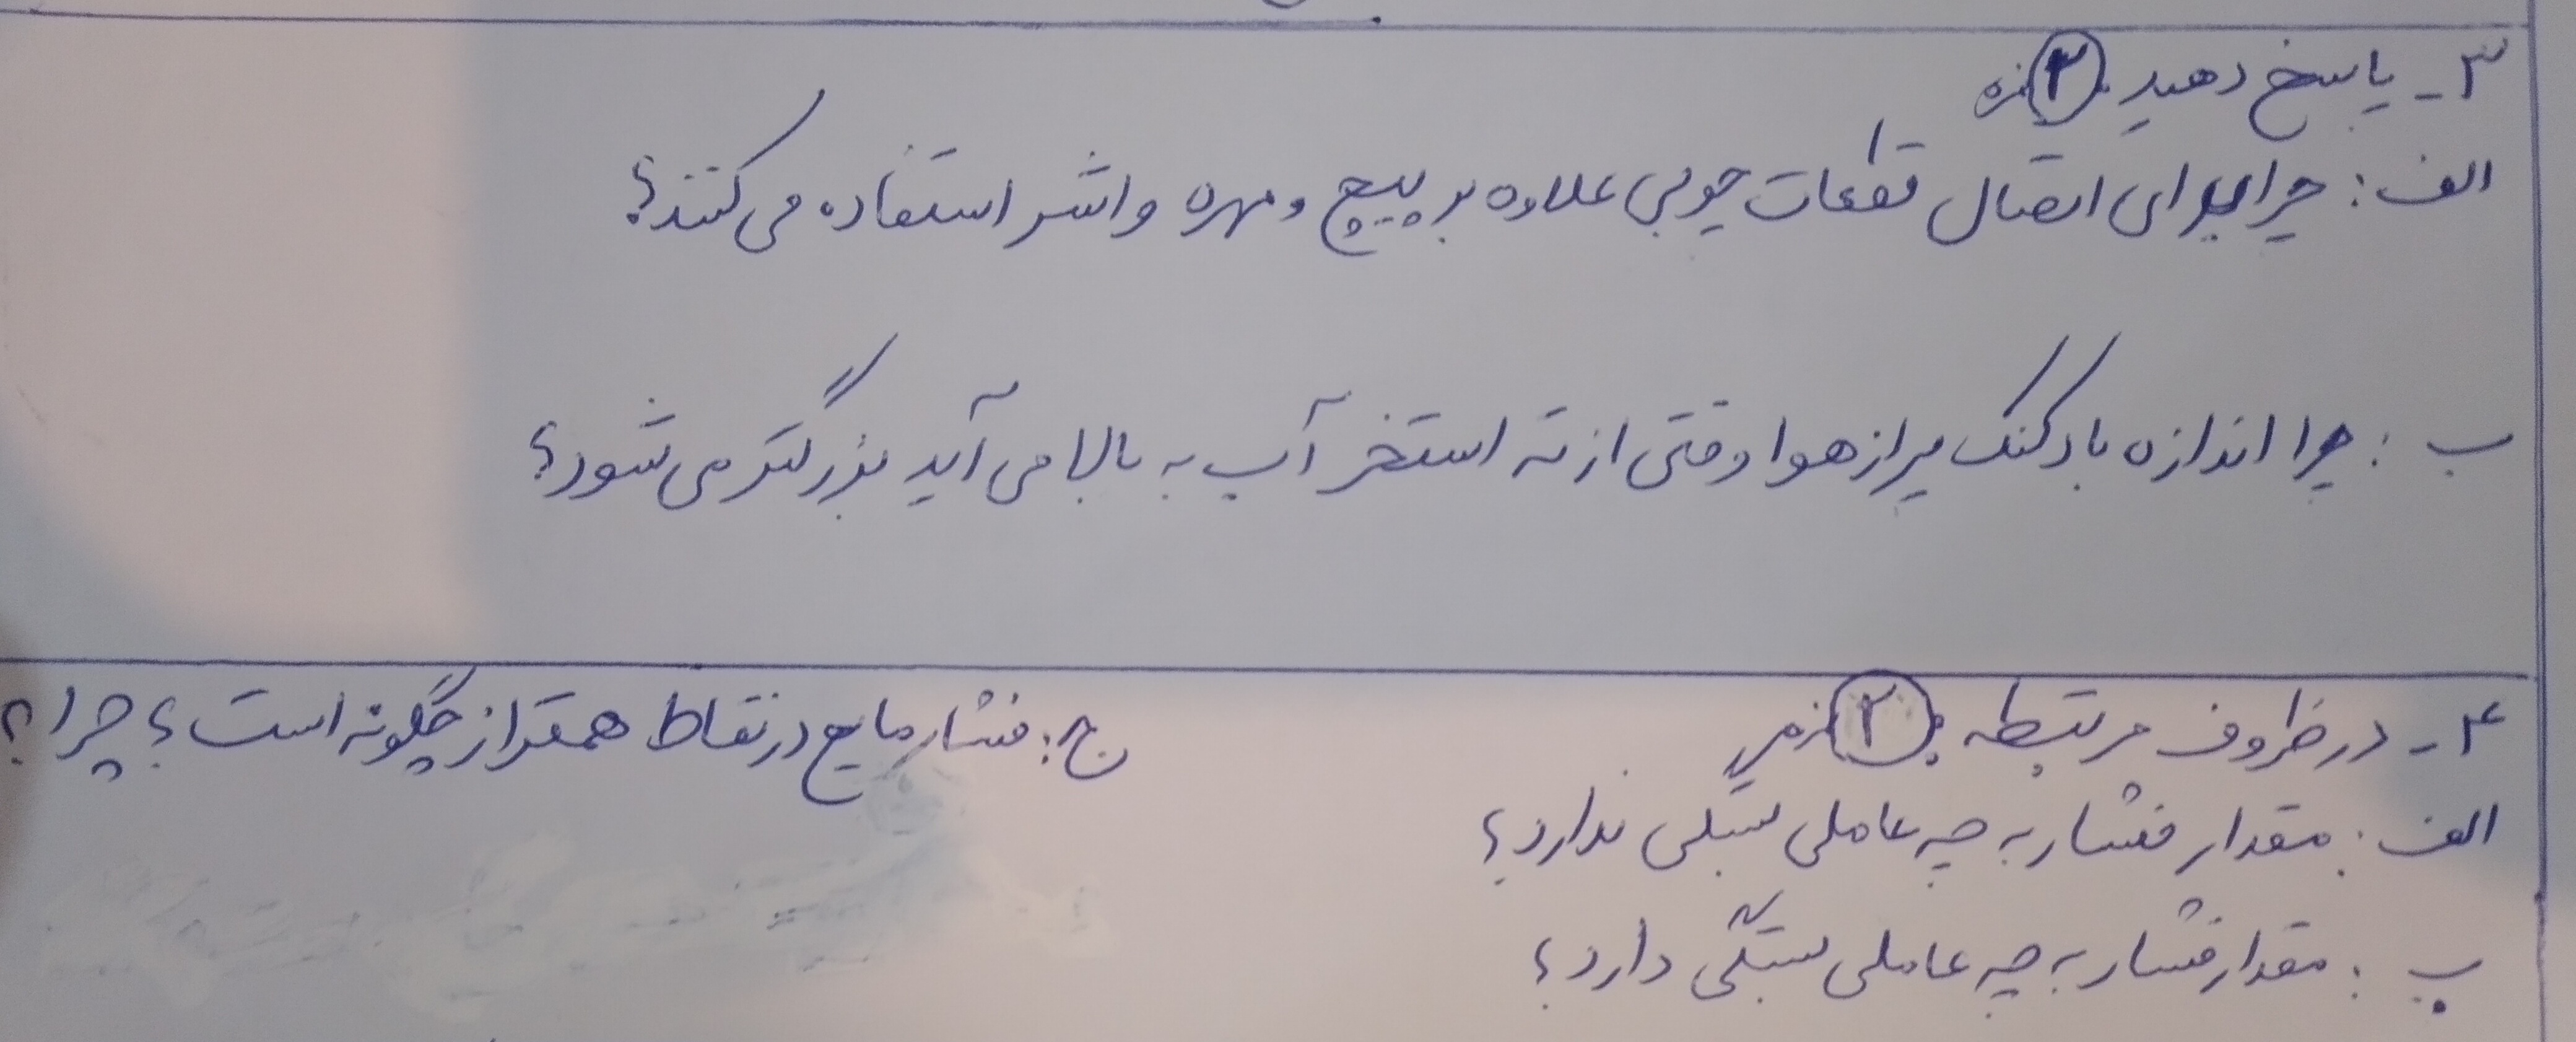 ۳- پاسخ دهید. ۲ نمره
الف: چرا برای اتصال قطعات چوبی علاوه بر پیچ و مهره واشر استفاده می کنند؟
ب: چرا اندازه بادکنک پر از هوا وقتی از ته استخر آب به بالا می آید بزرگتر می شود؟
۴- در ظروف مرتبطه: ۲
الف: مقدار فشار به چه عاملی بستگی ندارد؟
ب: مقدار فشار به چه عاملی بستگی دارد؟
ج: فشار مایع در نقاط همتراز چگونه است؟ چرا؟